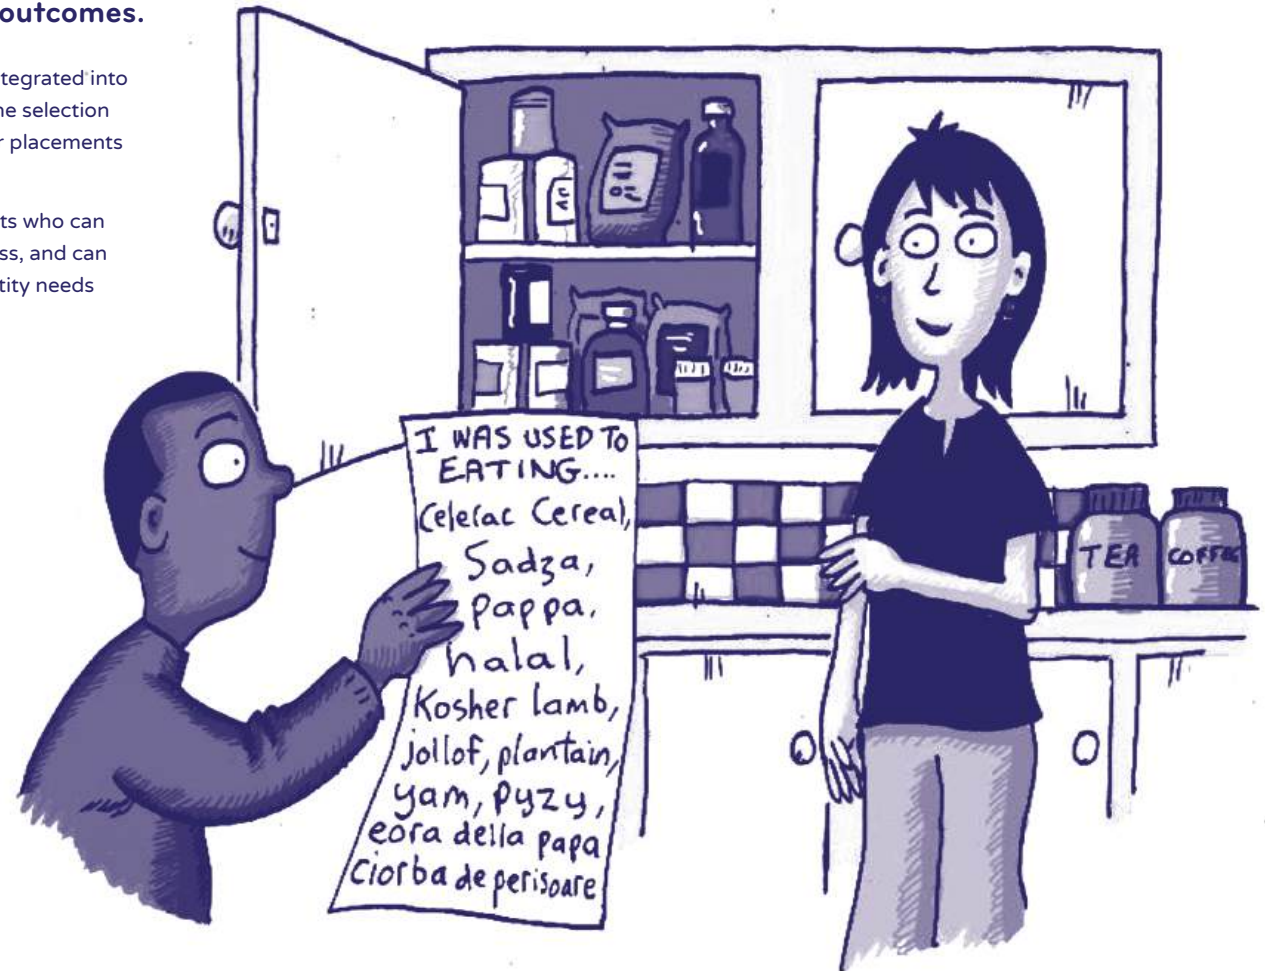 outcomes.
tegrated into
ne selection
r placements
ts who can
ss, and can
tity needs
I WAS USED TO
EATING....
Celerac Cereal,
Sadza,
pappa,
halal,
Kosher lamb,
jollof, plantain,
yam, pyzy,
eora della papa
Ciorba de perisoare
TEA
COFFEE